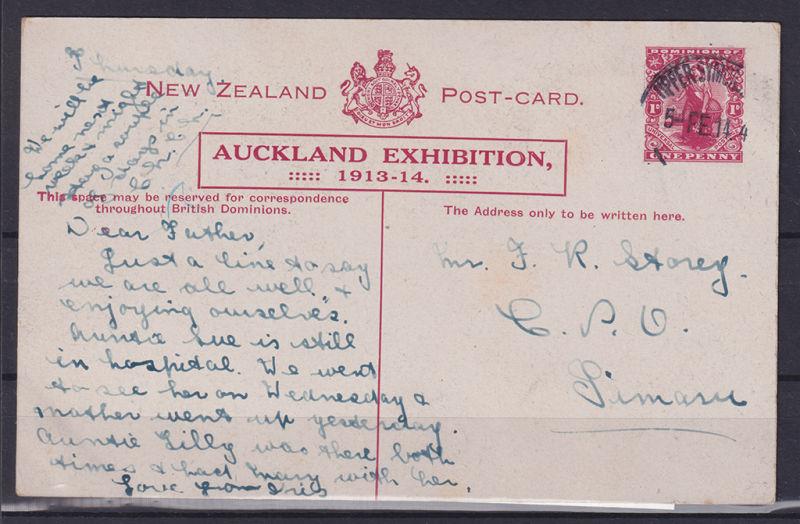 Thursday
We will be
home next
week might
stay a couple
days in
NEW ZEALAND POST-CARD.
DOMINION OF
1D 1D
UNIVERSAL POSTAGE
ONE PENNY
UPPER SYMO
5-FE 14
AUCKLAND EXHIBITION,
1913-14.
This space may be reserved for correspondence
throughout British Dominions.
The Address only to be written here.
Dear Father,
Just a line to say
we are all well &
enjoying ourselves.
Auntie Sue is still
in hospital. We went
to see her on Wednesday &
mother went up yesterday.
Auntie Lilly was there both
times & had Mary with her.
Love from Iris
Mr. F. K. Storey.
C. P. O.
Timaru